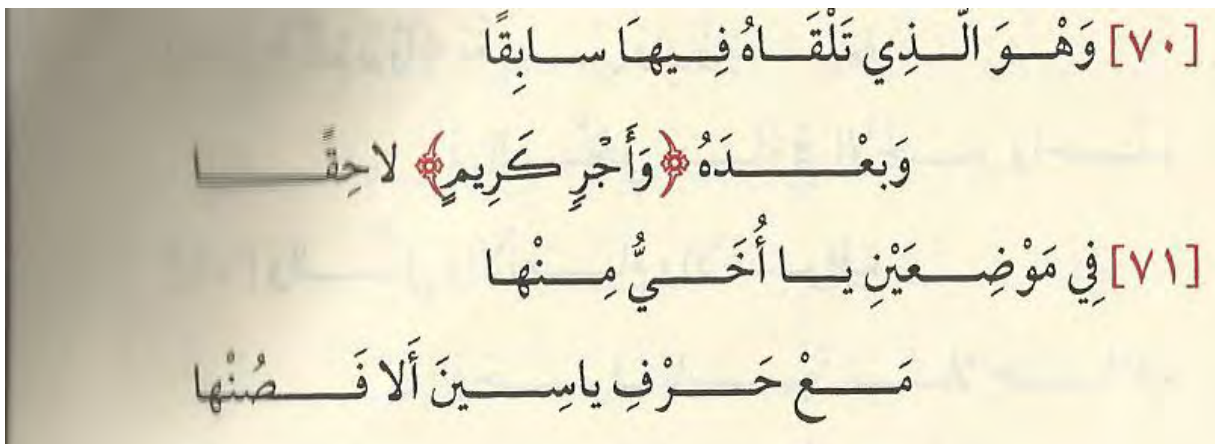 [٧٠] وَهْوَ الَّذِي تَلْقَاهُ فِيهَا سابِقًا
وَبعْدَهُ ﴿وَأَجْرٍ كَرِيمٍ﴾ لاحِقًا
[٧١] فِي مَوْضِعَيْنِ يا أُخَيُّ مِنْها
مَعْ حَرْفِ ياسِينَ أَلا فَصُنْها